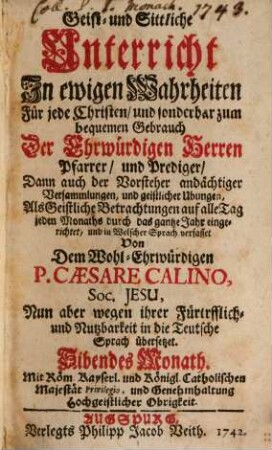 Coll. S. J. Monach. 1743.
Geist- und Sittliche
Unterricht
In ewigen Wahrheiten
Für jede Christen/ und sonderbar zum
bequemen Gebrauch
Der Ehrwürdigen Herren
Pfarrer/ und Prediger/
Dann auch der Vorsteher andächtiger
Versammlungen, und geistlicher Übungen,
Als Geistliche Betrachtungen auf alle Tag
jeden Monaths durch das gantze Jahr einge-
richtet, und in Welscher Sprach verfasset
Von
Dem Wohl-Ehrwürdigen
P. CÆSARE CALINO,
Soc. JESU,
Nun aber wegen ihrer Fürtrfflich-
und Nutzbarkeit in die Teutsche
Sprach übersetzet.
Sibendes Monath.
Mit Röm. Kayserl. und Königl. Catholischen
Majestät Privilegio, und Genehmhaltung
Hochgeistlicher Obrigkeit.
AUGSPURG,
Verlegts Philipp Jacob Veith. 1742.